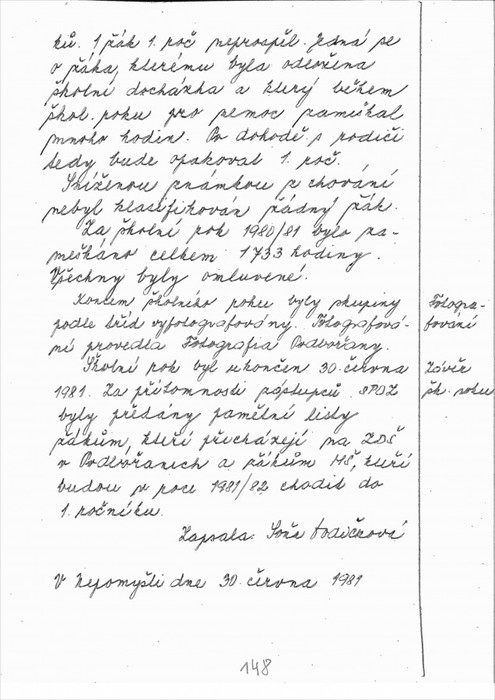 ků. 1 žák 1. roč neprospěl. Jedná se
o žáka, kterému byla odložena
školní docházka a který během
škol. roku pro nemoc zameškal
mnoho hodin. Po dohodě s rodiči
tedy bude opakovat 1. roč.
Sníženou známkou z chování
nebyl klasifikován žádný žák.
Za školní rok 1980/81 bylo za-
meškáno celkem 1733 hodiny.
Všechny byly omluvené.
Koncem školního roku byly skupiny
podle tříd vyfotografovány. Fotografová-
ní provedla Fotografia Podbořany.
Fotogra-
fování
Školní rok byl ukončen 30. června
1981. Za přítomnosti zástupců SPOZ
byly předány pamětní listy
žákům, kteří přecházejí na ZDŠ
v Podbořanech a žákům MŠ, kteří
budou v roce 1981/82 chodit do
1. ročníku.
Závěr
šk. roku
Zapsala: Soňa
V Nepomyšli dne 30. června 1981
148